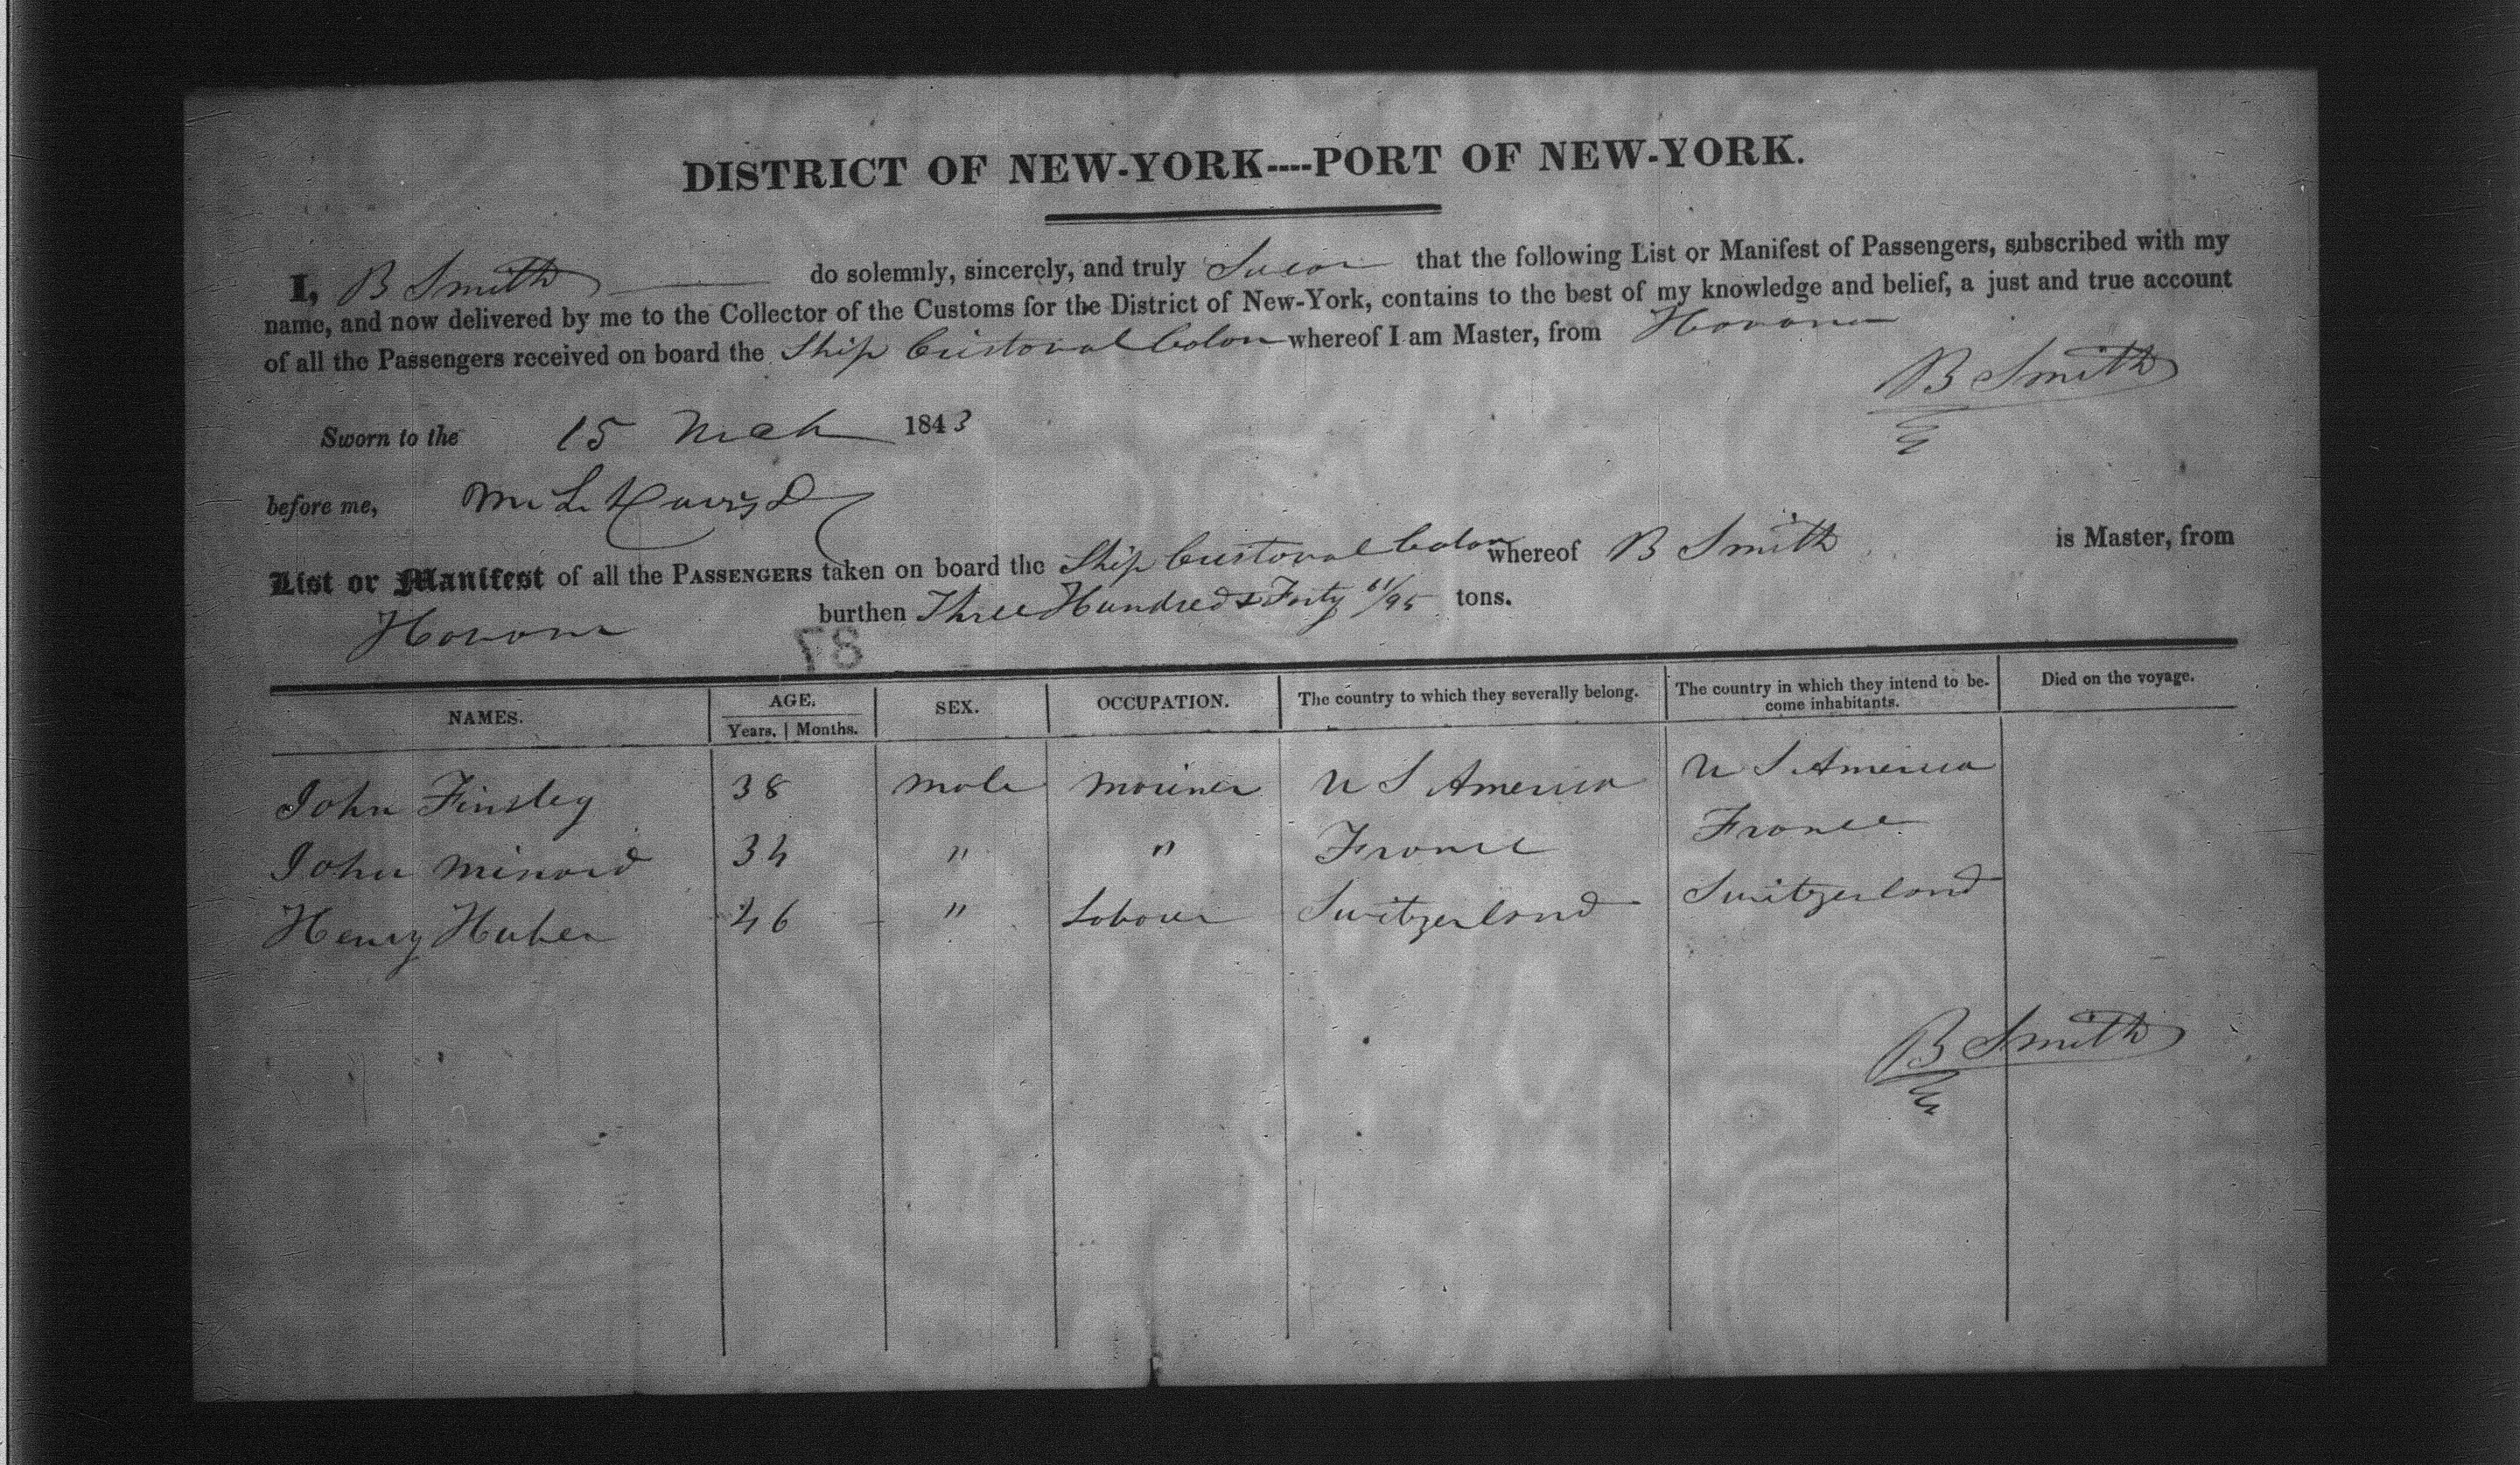 DISTRICT OF NEW-YORK----PORT OF NEW-YORK.
I, B Smith do solemnly, sincerely, and truly Swear that the following List or Manifest of Passengers, subscribed with my
name, and now delivered by me to the Collector of the Customs for the District of New-York, contains to the best of my knowledge and belief, a just and true account
of all the Passengers received on board the Ship Cristoval Colon whereof I am Master, from Havana
B Smith
Sworn to the 15 Mch 1843
before me, M. L. Davis D
List or Manifest of all the PASSENGERS taken on board the Ship Cristoval Colon whereof B Smith is Master, from
Havana burthen Three Hundred & Forty 61/95 tons.
87
NAMES. AGE. SEX. OCCUPATION. The country to which they severally belong. The country in which they intend to be-
come inhabitants. Died on the voyage.
Years. Months.
John Finsley 38 male mariner U S America U S America
John Minard 34 " " France France
Henry Huber 46 " Labourer Switzerland Switzerland
B Smith